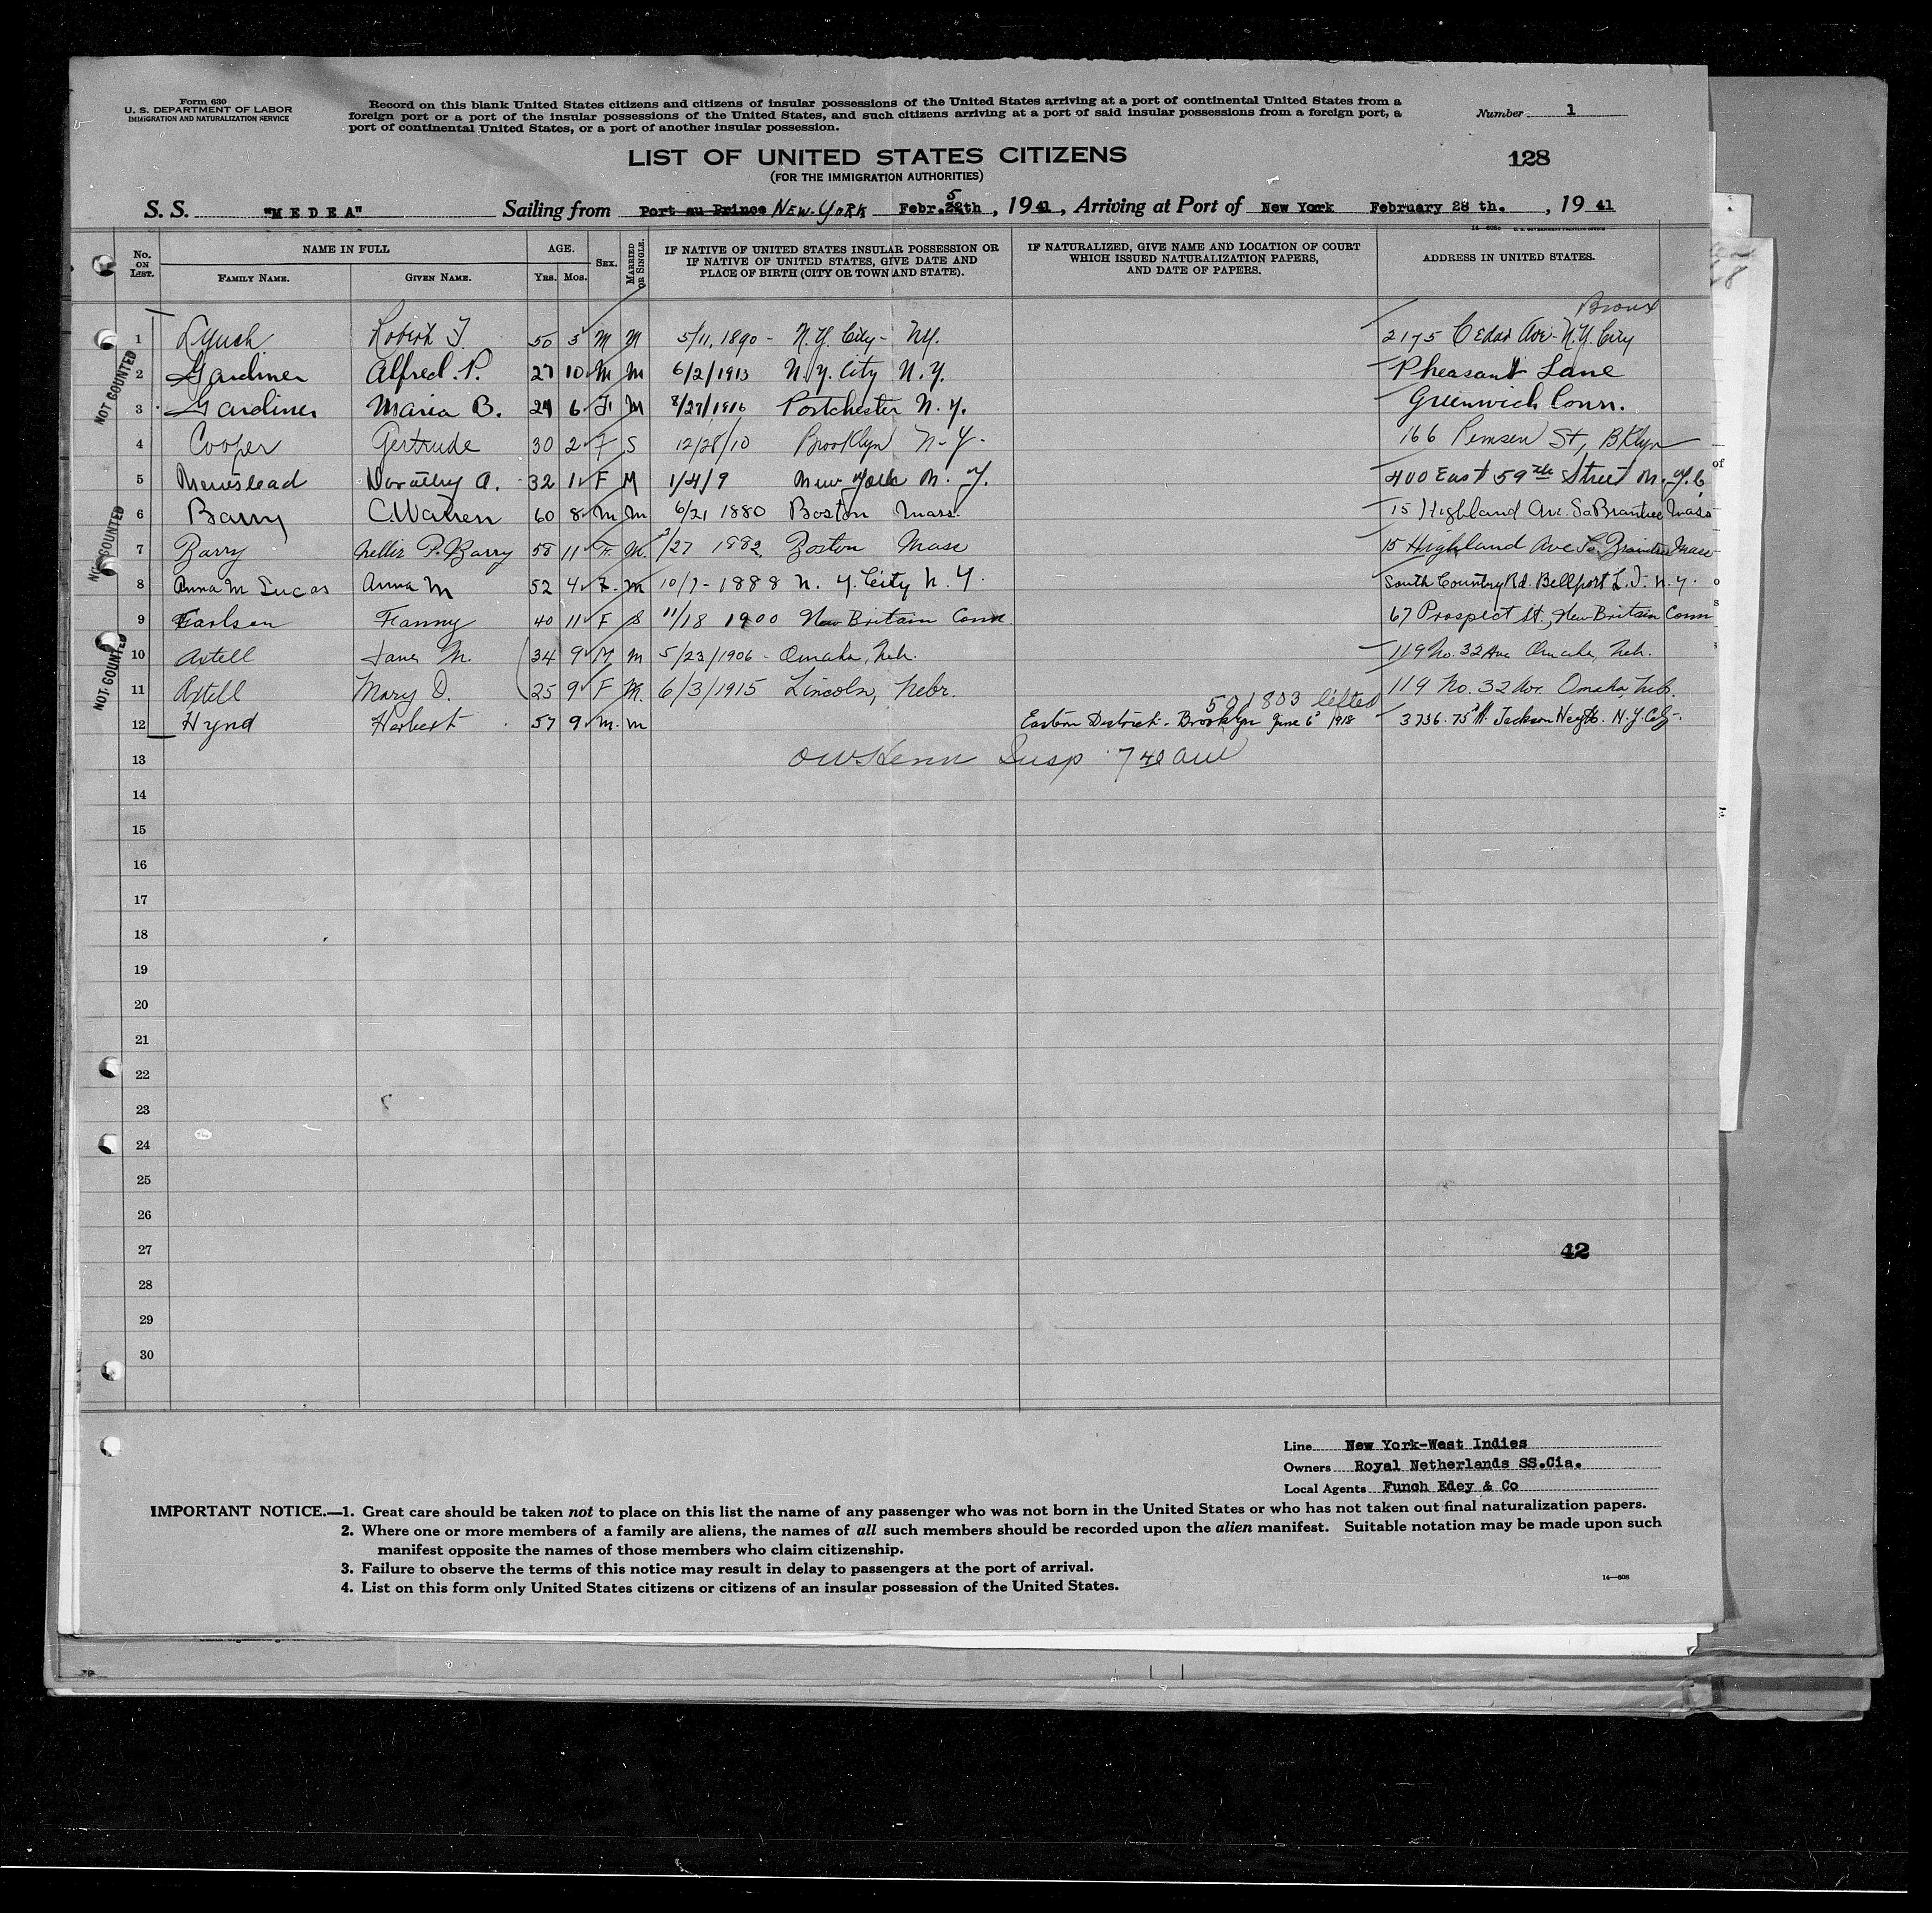 Form 630
U. S. DEPARTMENT OF LABOR
IMMIGRATION AND NATURALIZATION SERVICE
Record on this blank United States citizens and citizens of insular possessions of the United States arriving at a port of continental United States from a
foreign port or a port of the insular possessions of the United States, and such citizens arriving at a port of said insular possessions from a foreign port, a
port of continental United States, or a port of another insular possession.
Number 1
LIST OF UNITED STATES CITIZENS
(FOR THE IMMIGRATION AUTHORITIES)
128
S. S. "MEDEA" Sailing from Port au Prince NEW-YORK Febr. 5th, 1941, Arriving at Port of New York February 28 th., 1941
No. ON LIST. NAME IN FULL AGE. SEX. MARRIED OR SINGLE. IF NATIVE OF UNITED STATES INSULAR POSSESSION OR IF NATIVE OF UNITED STATES, GIVE DATE AND PLACE OF BIRTH (CITY OR TOWN AND STATE). IF NATURALIZED, GIVE NAME AND LOCATION OF COURT WHICH ISSUED NATURALIZATION PAPERS, AND DATE OF PAPERS. ADDRESS IN UNITED STATES.
FAMILY NAME. GIVEN NAME. YRS. MOS.
Bronx
1 Lynch Robert J. 50 M M 5/11, 1890 - N.Y. City - NY. 2175 Cedar Ave - N.Y. City
2 Gardiner Alfred. P. 27 10 M M 6/2/1913 N.Y. City N.Y. Pheasant Lane
3 Gardiner Maria B. 24 6 F M 8/27/1916 Portchester N.Y. Greenwich Conn.
4 Cooper Gertrude 30 2 F S 12/28/10 Brooklyn N-Y- 166 St, BKlyn
5 Dorothy A. 32 1 F M 1/4/9 New York N.Y. 400 East 59th Street N.Y.C
6 Barry C. Warren 60 8 M M 6/21 1880 Boston Mass. 15 Highland Ave. So Braintree Mass
7 Barry Nellie P. Barry 58 11 F. M. /27 1882 Boston Mass 15 Highland Ave So. Braintree Mass
8 Anna M Lucas Anna M 52 4 F. M 10/7-1888 N.Y. City N.Y. South Country Rd. Bellport L.I. N.Y.
9 Carlson Fanny 40 11 F S 11/18 1900 New Britain Conn 67 Prospect St., New Britain Conn
10 Axtell M. 34 9 M M 5/23/1906 - Omaha, Neb. 119 No. 32 Ave Omaha, Neb.
11 Axtell Mary D. 25 9 F M. 6/3/1915 Lincoln, Nebr. 119 No. 32 Av. Omaha, Neb.
lifted
12 Hynd Herbert 57 9 M. M Eastern District - Brooklyn June 6 1918 3736. 75 St. Jackson Heights. N.Y. City.
NOT COUNTED
NOT COUNTED
NOT COUNTED
13 Insp 7 40 am
14
15
16
17
18
19
20
21
22
23
24
25
26
27 42
28
29
30
Line New York-West Indies
Owners Royal Netherlands SS.Cia.
Local Agents Funch Edey & Co
IMPORTANT NOTICE.—1. Great care should be taken not to place on this list the name of any passenger who was not born in the United States or who has not taken out final naturalization papers.
2. Where one or more members of a family are aliens, the names of all such members should be recorded upon the alien manifest. Suitable notation may be made upon such
manifest opposite the names of those members who claim citizenship.
3. Failure to observe the terms of this notice may result in delay to passengers at the port of arrival.
4. List on this form only United States citizens or citizens of an insular possession of the United States.
14—608